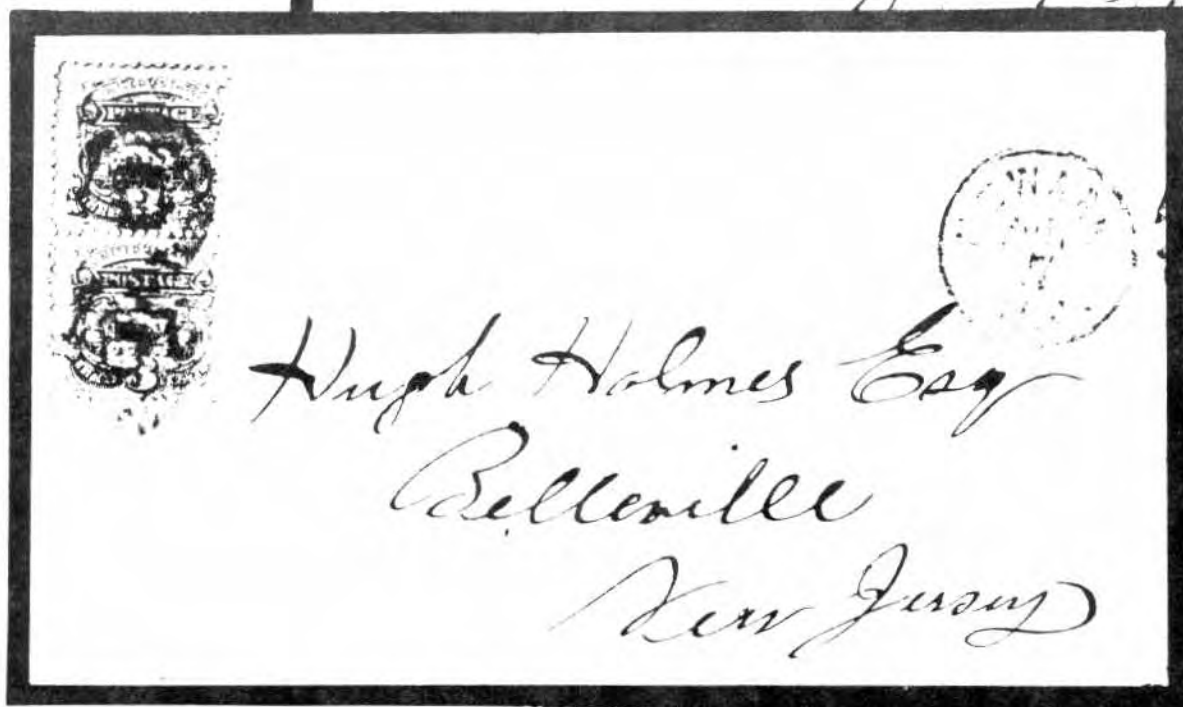 POSTAGE
POSTAGE
Hugh Holmes Esq
Belleville
New Jersey